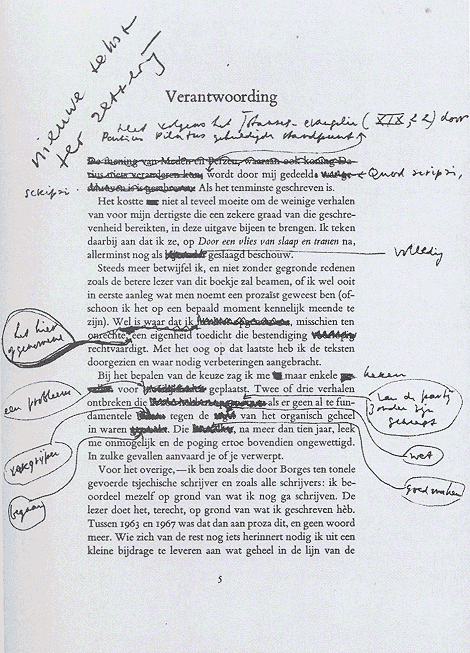 nieuwe tekst
ter zetterij
Verantwoording
Het volgens het Johannes-evangelie (XIX, 22) door
Pontius Pilatus gehuldigde standpunt
De mening van Meden en Perzen, waaraan ook koning Da-
rius niets veranderen kon, wordt door mij gedeeld. Quod scripsi,
scripsi. Als het tenminste geschreven is.
Het kostte niet al teveel moeite om de weinige verhalen
van voor mijn dertigste die een zekere graad van die geschre-
venheid bereikten, in deze uitgave bijeen te brengen. Ik teken
daarbij aan dat ik ze, op Door een vlies van slaap en tranen na,
allerminst nog als geslaagd beschouw. volledig
Steeds meer betwijfel ik, en niet zonder gegronde redenen
zoals de betere lezer van dit boekje zal beamen, of ik wel ooit
in eerste aanleg wat men noemt een prozaïst geweest ben (of-
schoon ik het op een bepaald moment kennelijk meende te
zijn). Wel is waar dat ik misschien ten
het hier
opgenomene
onrechte, een eigenheid toedicht die bestendiging
rechtvaardigt. Met het oog op dat laatste heb ik de teksten
doorgezien en waar nodig verbeteringen aangebracht.
Bij het bepalen van de keuze zag ik me maar enkele keren
een probleem
voor geplaatst. Twee of drie verhalen
van de partij
zouden zijn
geweest
ontbreken die als er geen al te fun-
damentele tegen de van het organisch geheel
vergrijpen
wet
in waren Die na meer dan tien jaar, leek
begaan
goedmaken
me onmogelijk en de poging ertoe bovendien ongewettigd.
In zulke gevallen aanvaard je of je verwerpt.
Voor het overige, — ik ben zoals die door Borges ten tonele
gevoerde tsjechische schrijver en zoals alle schrijvers: ik be-
oordeel mezelf op grond van wat ik nog ga schrijven. De
lezer doet het, terecht, op grond van wat ik geschreven hèb.
Tussen 1963 en 1967 was dat dan aan proza dit, en geen woord
meer. Wie zich van de rest nog iets herinnert nodig ik uit een
kleine bijdrage te leveren aan wat geheel in de lijn van de
5